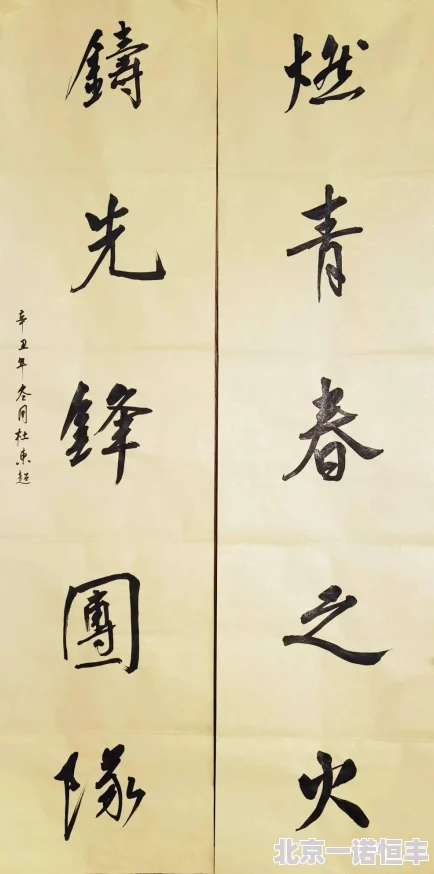 燃青春之火
鑄先鋒團隊
辛丑年冬月杜東超
北京一诺恒丰